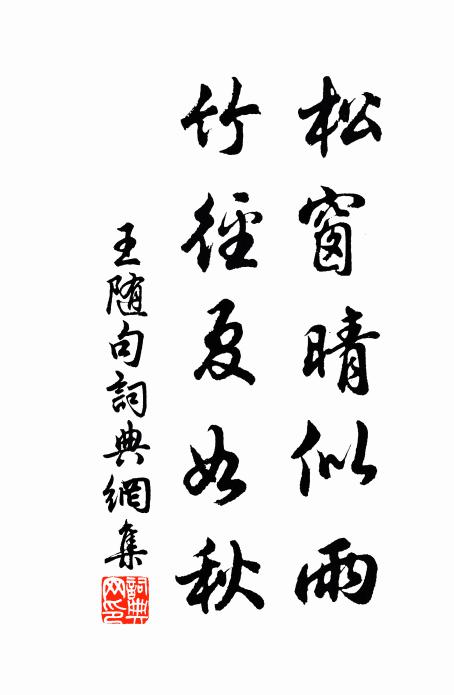 松窗晴似雨
竹徑夏如秋
王随句詞典網集
詞典网印